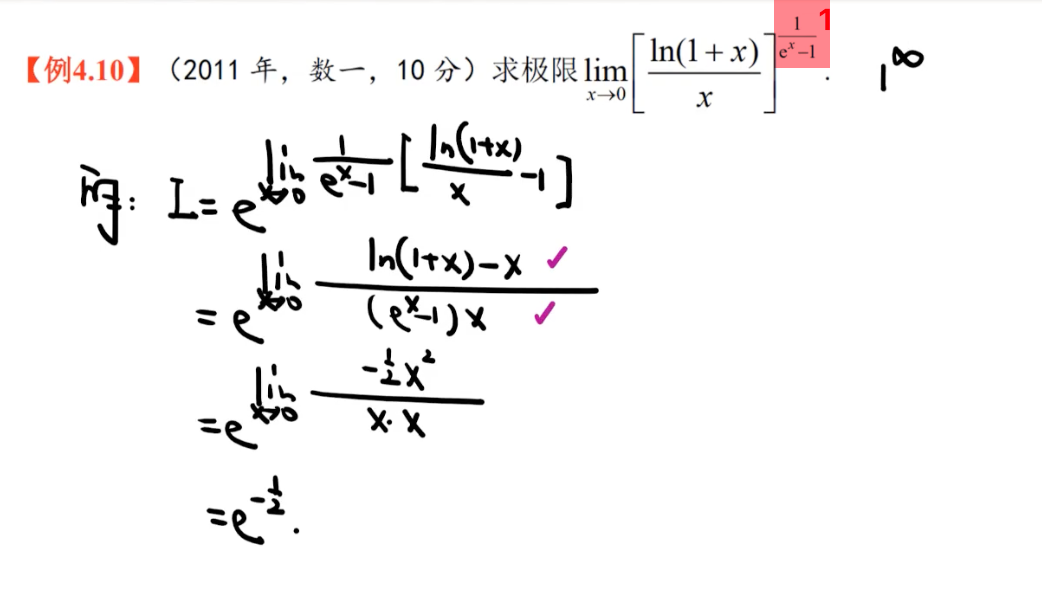 【例4.10】（2011 年，数一，10 分）求极限 lim_{x→0} [ln(1+x)/x]^{1/(e^x−1)}. 1 1^∞
解: I = e^{lim_{x→0} 1/(e^x−1) [ln(1+x)/x −1]}
= e^{lim_{x→0} (ln(1+x)−x)/((e^x−1)x)} ✓ ✓
= e^{lim_{x→0} (−1/2 x^2)/(x·x)}
= e^{−1/2}.